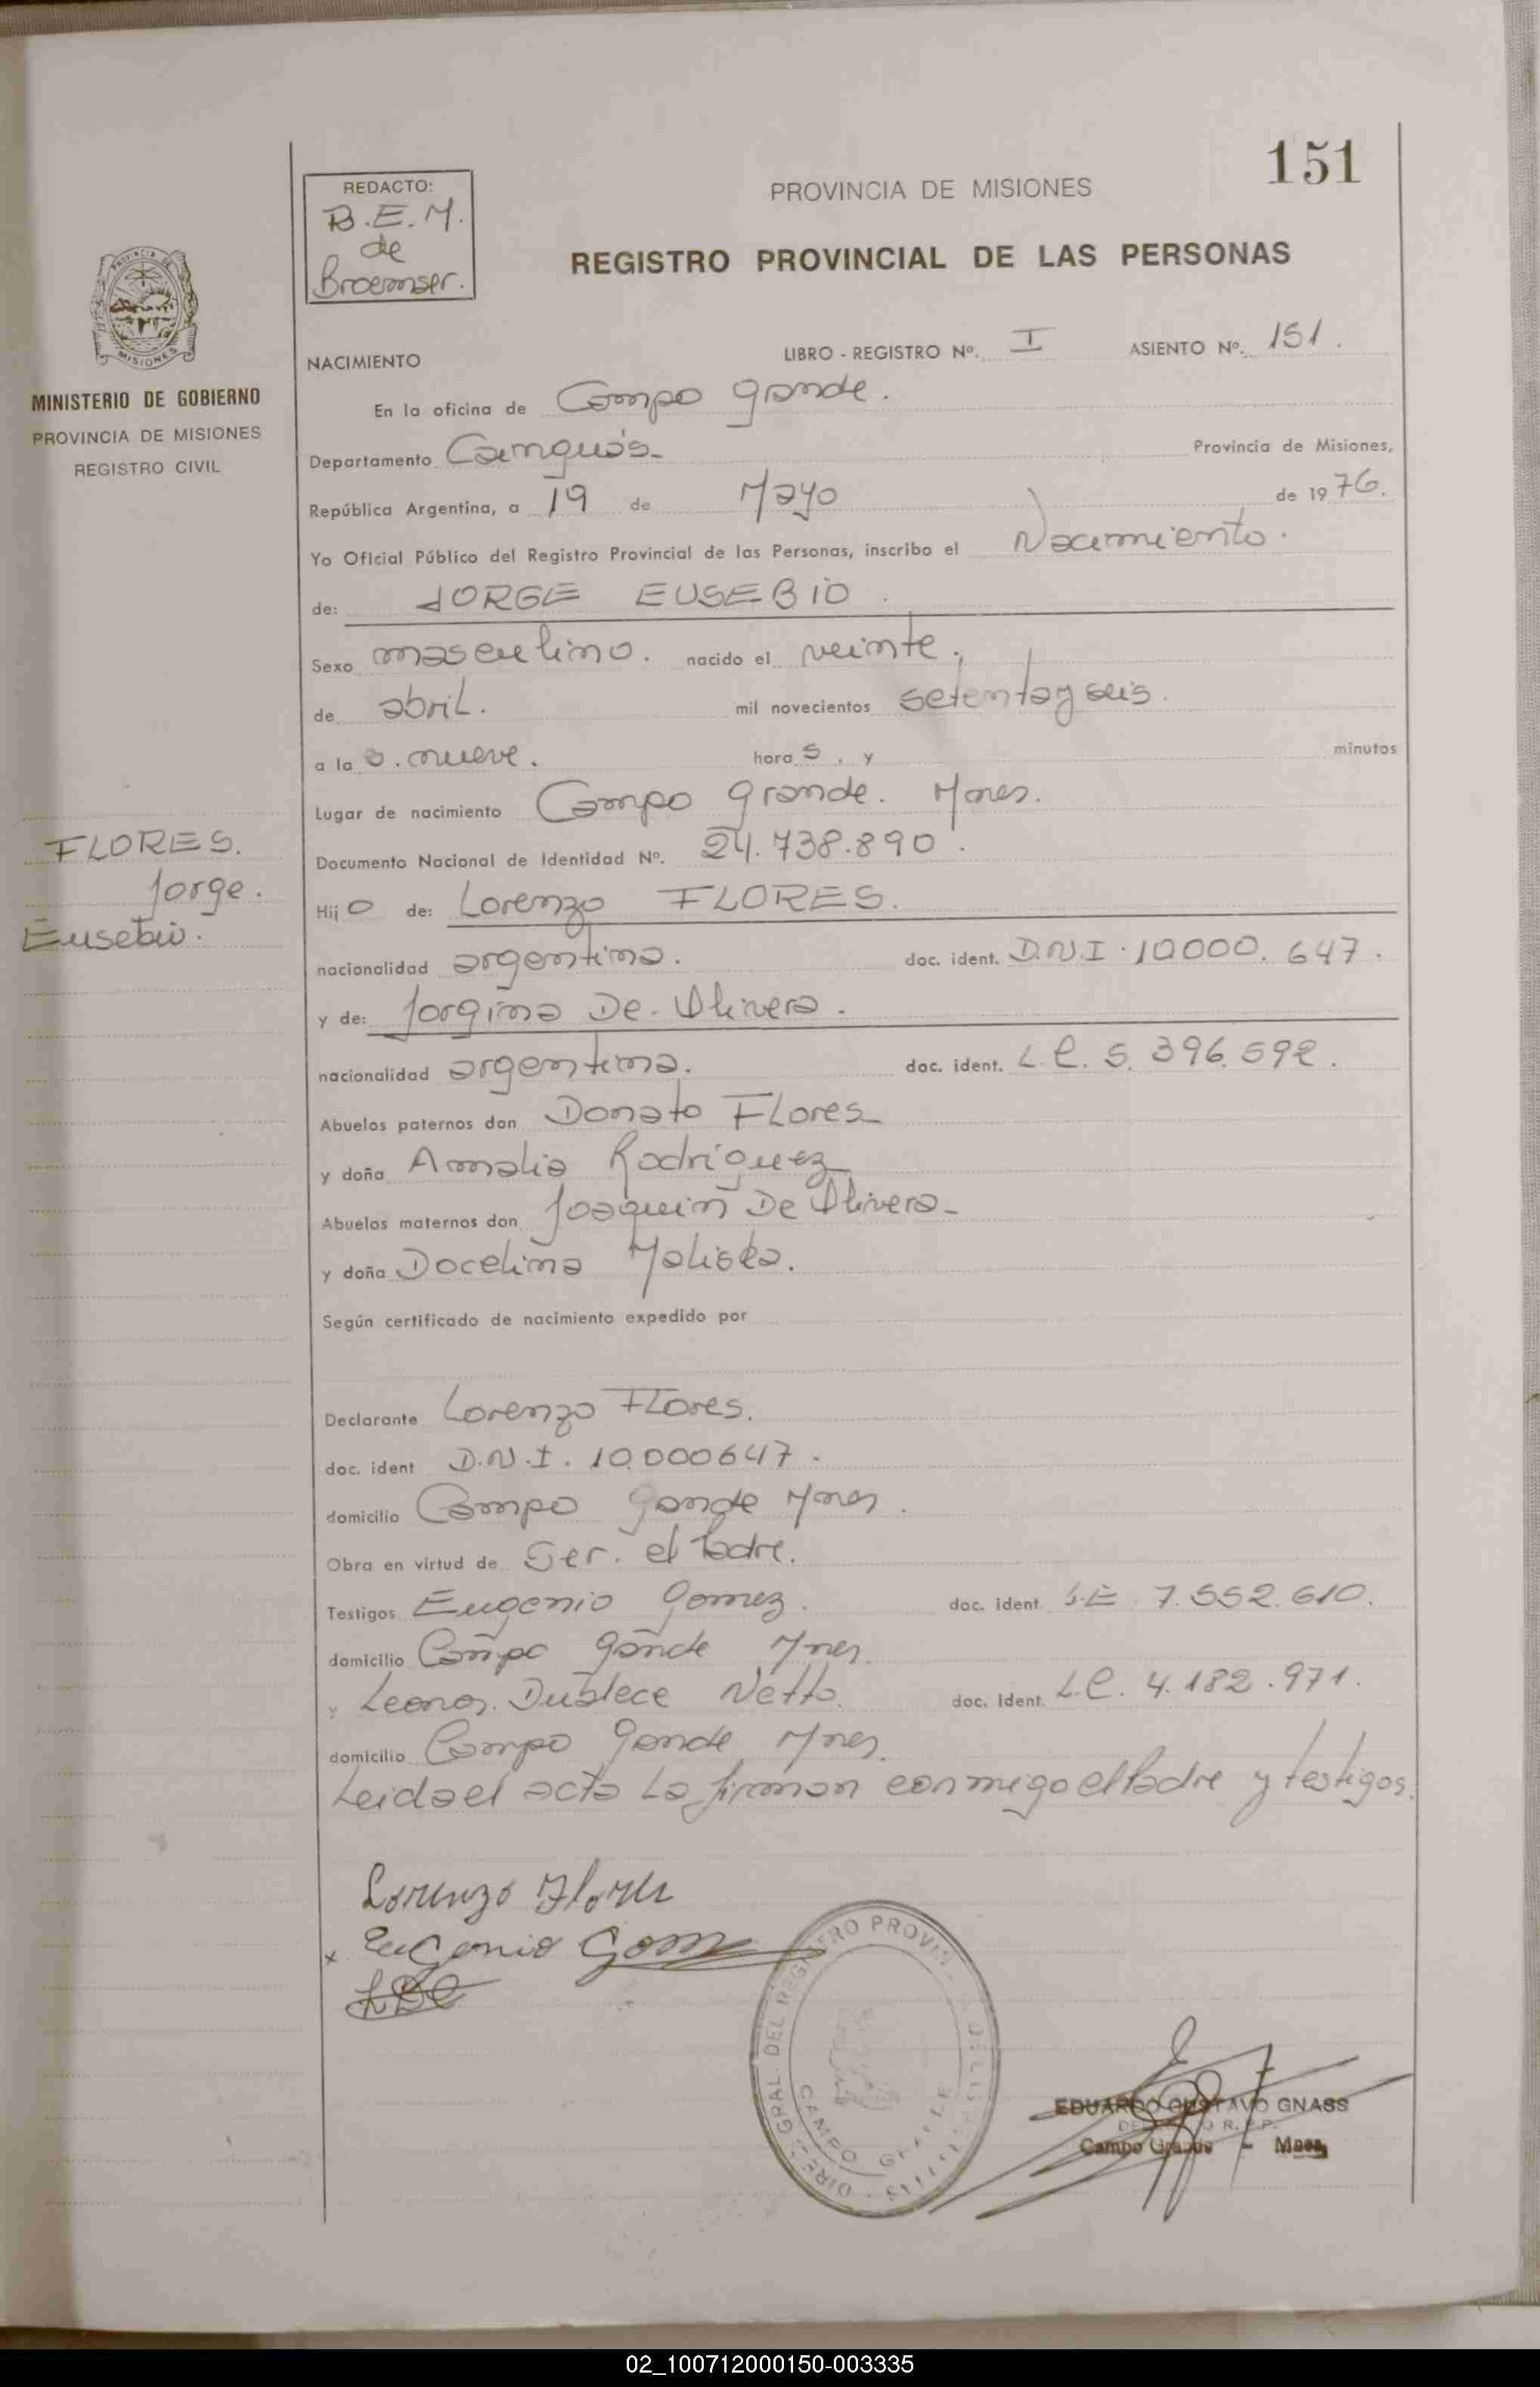 151
REDACTO:
B.E.M.
de
Broemser.
PROVINCIA DE MISIONES
REGISTRO PROVINCIAL DE LAS PERSONAS
MISIONES
MINISTERIO DE GOBIERNO
PROVINCIA DE MISIONES
REGISTRO CIVIL
NACIMIENTO LIBRO - REGISTRO Nº. I ASIENTO Nº. 151.
En la oficina de Campo Grande.
Departamento Cainguás Provincia de Misiones,
República Argentina, a 19 de Mayo de 1976.
Yo Oficial Público del Registro Provincial de las Personas, inscribo el Nacimiento.
de: JORGE EUSEBIO.
Sexo masculino. nacido el veinte,
de abril. mil novecientos setentay seis.
a la s. nueve. hora s. y minutos
Lugar de nacimiento Campo Grande. Mnes.
FLORES.
Jorge.
Eusebio.
Documento Nacional de Identidad Nº. 24.738.890.
Hij o de: Lorenzo FLORES.
nacionalidad argentina. doc. ident. D.N.I. 10.000.647.
y de: Jorgina De Olivera.
nacionalidad argentina. doc. ident. L.C. 5.396.592.
Abuelos paternos don Donato Flores
y doña Amalia Rodríguez
Abuelos maternos don Joaquin De Olivera
y doña Docelina
Según certificado de nacimiento expedido por
Declarante Lorenzo Flores.
doc. ident D.N.I. 10.000647.
domicilio Campo Gande Mnes.
Obra en virtud de Ser. el Padre.
Testigos Eugenio Gomez. doc. ident. L.E. 7.552.610.
domicilio Campo Gande Mnes.
y Leonor Netto. doc. Ident. L.C. 4.182.971.
domicilio Campo Gande Mnes.
Leida el acta La firman conmigo el Padre y testigos.
Lorenzo Flores
x Eugenio Gom
DIRE. GRAL. DEL REGISTRO PROVIN
CAMPO GRANDE
EDUARDO GUSTAVO GNASS
Campo Grande - Mnes
02_100712000150-003335